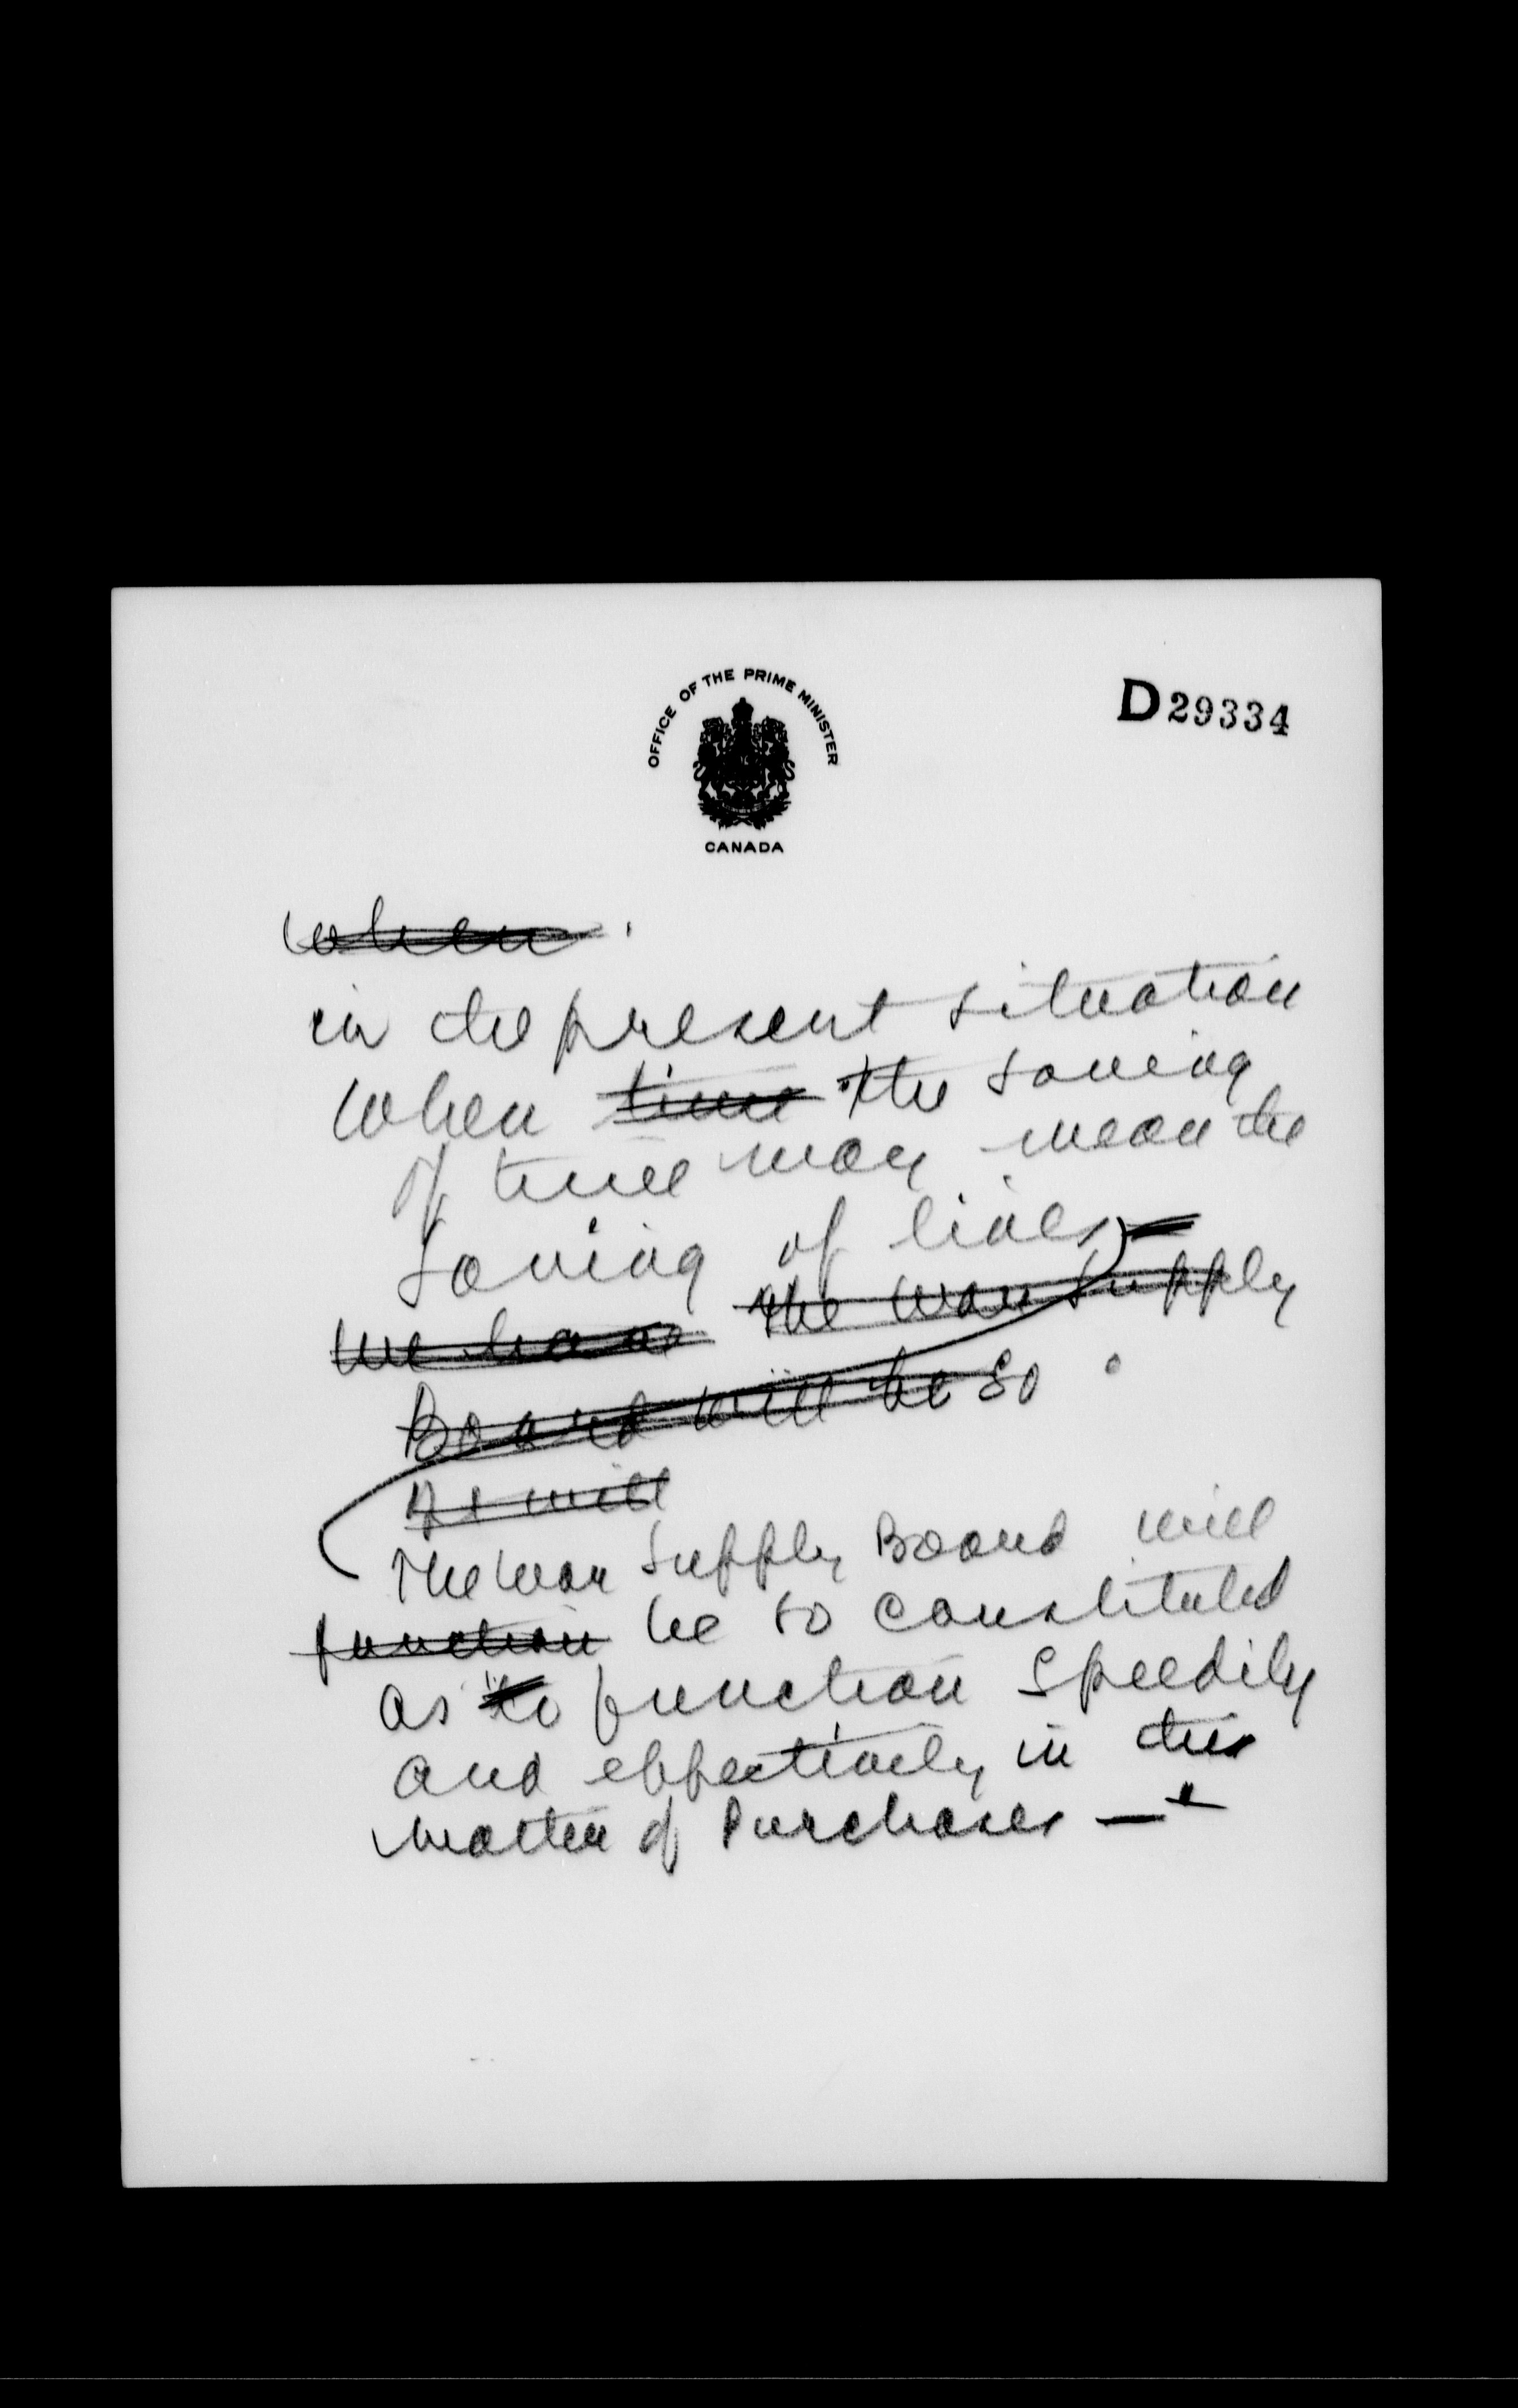 OFFICE OF THE PRIME MINISTER
CANADA
D29334
when
in the present situation
when time the saving
of time may mean the
saving of lives
we have the War Supply
Board will be so
It will
The War Supply Board will
function be so constituted
as to function speedily
and effectively in this
matter of Purchases —